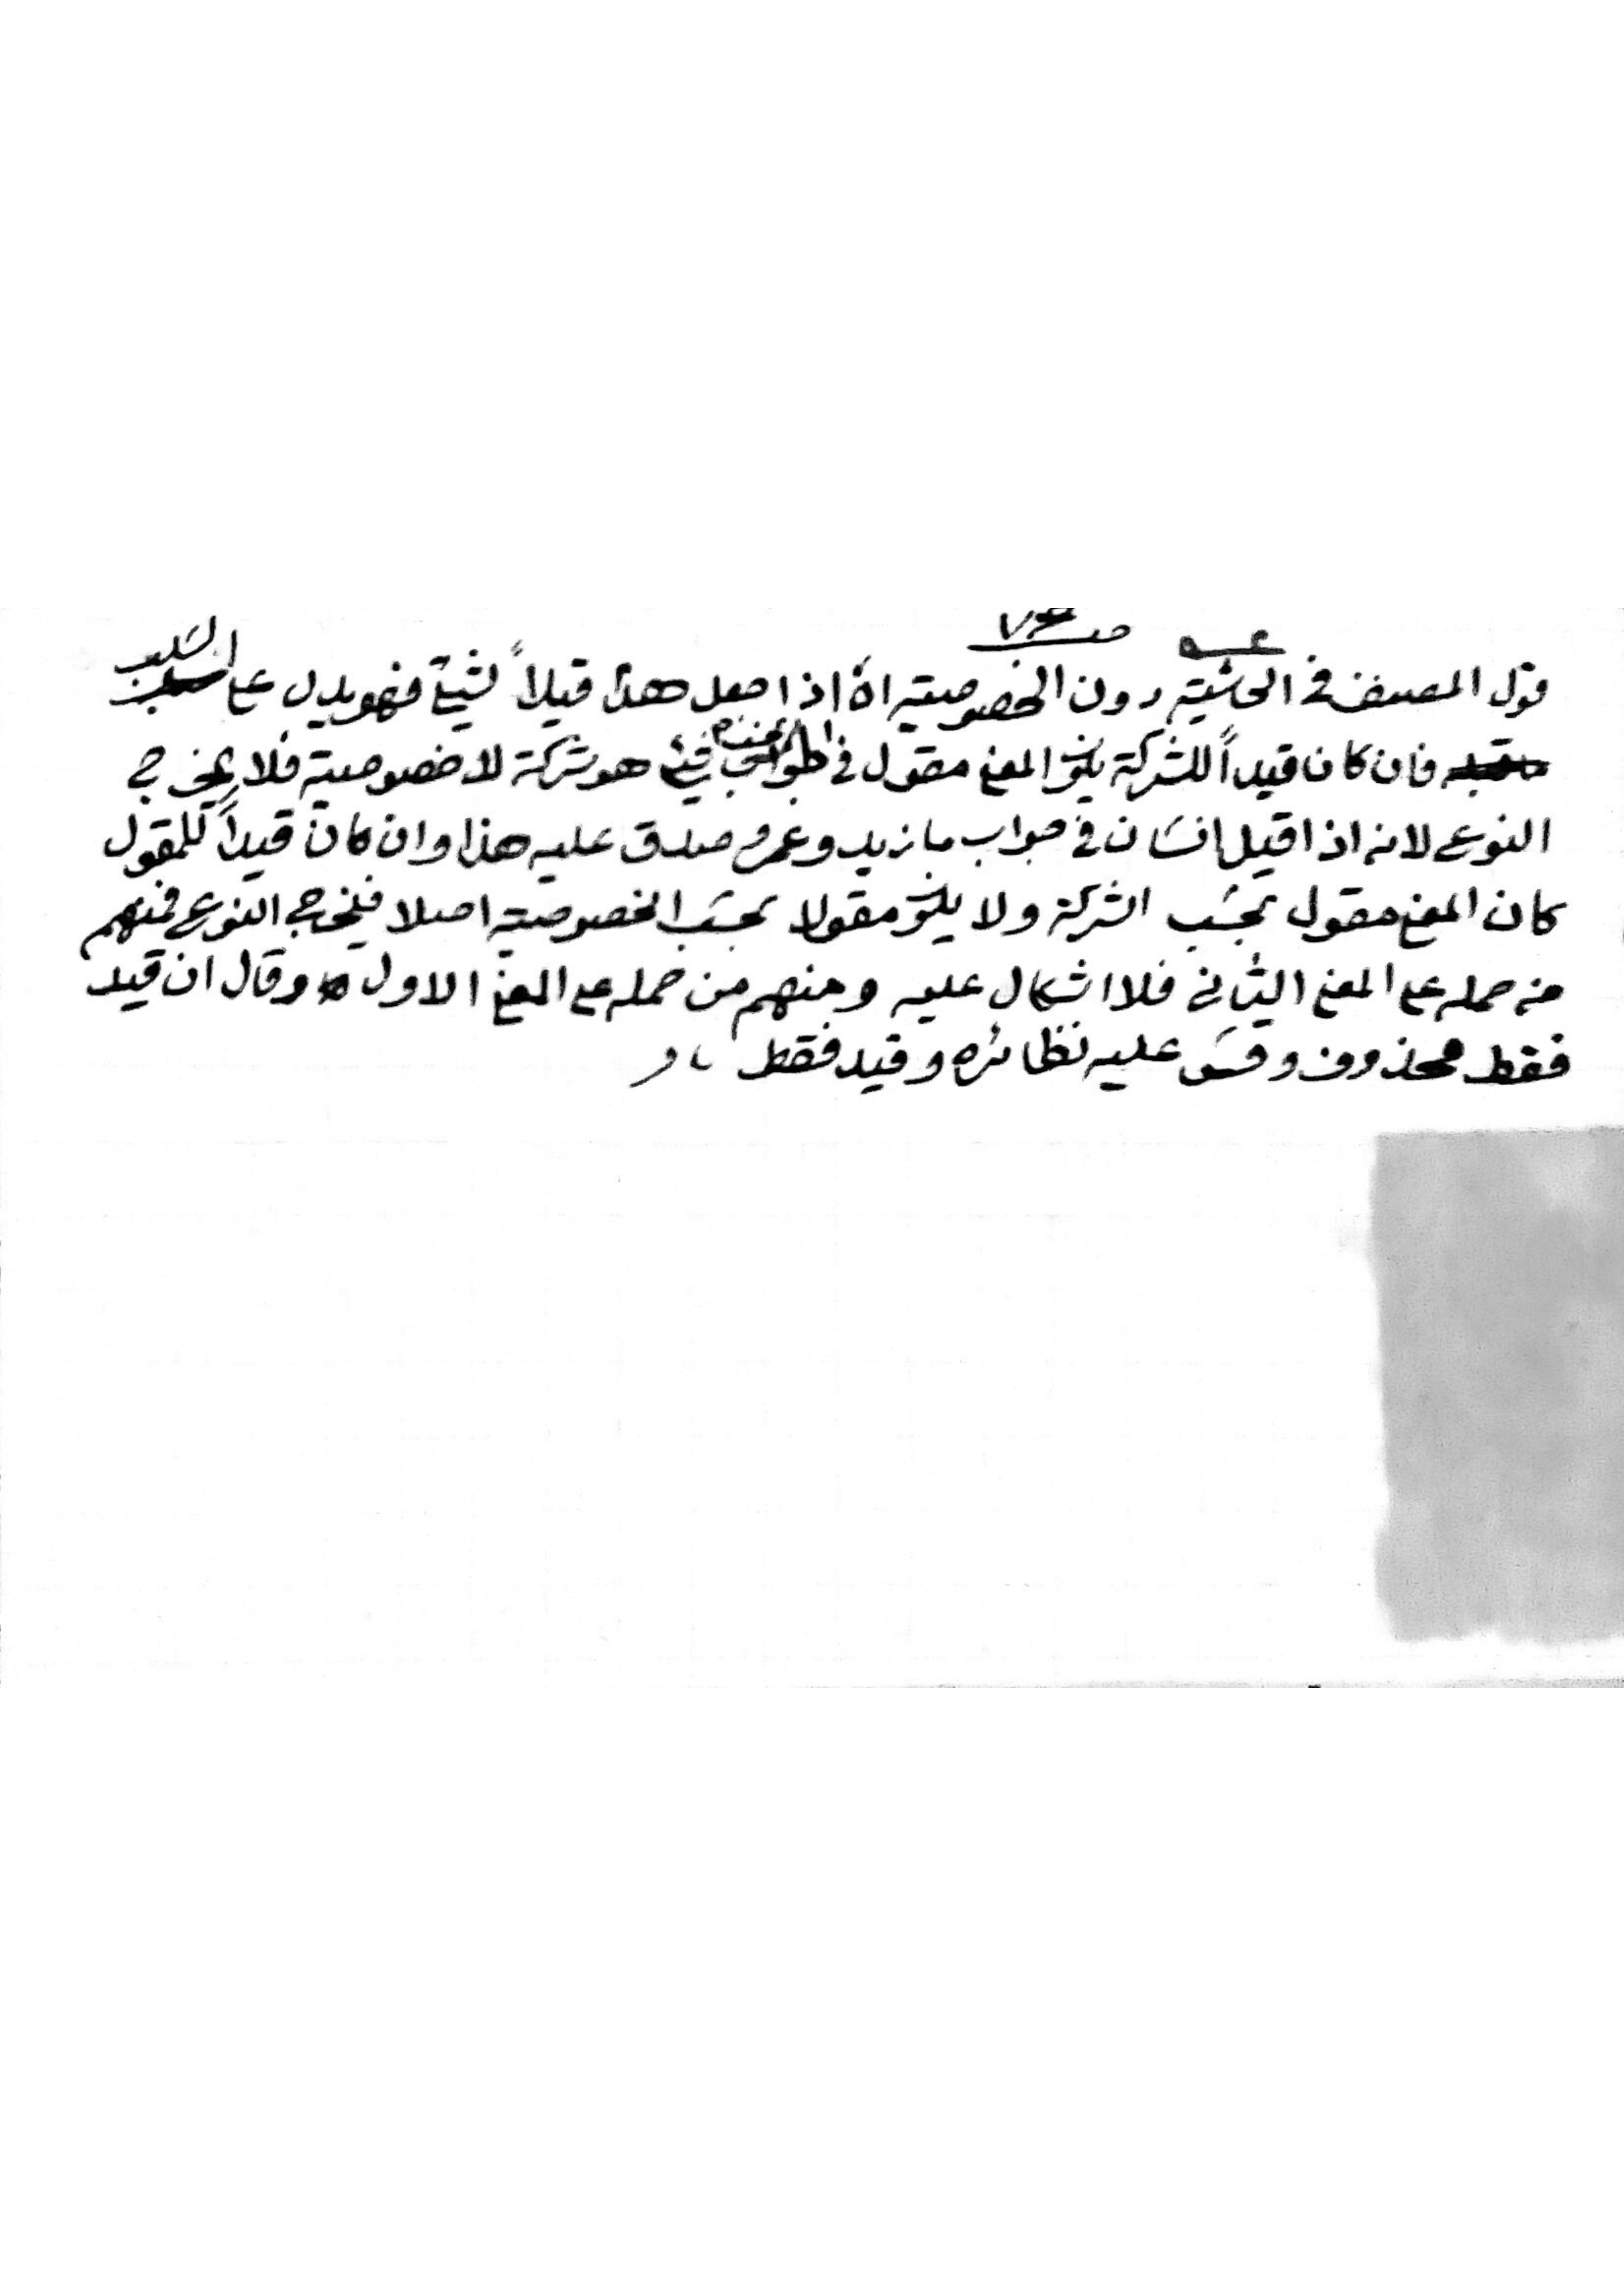 قول المصنف فى الحاشية دون الخصوصية اه اذا جعل هذا قيداً لشئ فهو يدل على السلب
فان كان قيداً للشركة يكون المعنى مقول فى الجواب هو شركة لا خصوصية فلا يخرج
النوع لانه اذا قيل انسان فى جواب ما زيد وعمرو صدق عليه هذا وان كان قيداً للمقول
كان المعنى مقول بحسب الشركة ولا يكون مقولا بحسب الخصوصية اصلا فيخرج النوع فمنهم
من حمله على المعنى الثانى فلا اشكال عليه ومنهم من حمله على المعنى الاول وقال ان قيد
فقط محذوف وقس عليه نظائره وقيد فقط